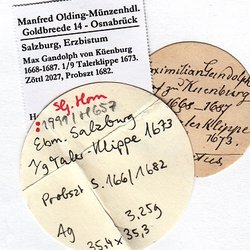 Manfred Olding-Münzenhdl.
Goldbreede 14 - Osnabrück
Salzburg, Erzbistum
Max Gandolph von Küenburg
1668-1687. 1/9 Talerklippe 1673.
Zöttl 2027, Probszt 1682.
Slg. Horn
1991/H657
Ebm. Salzburg
1/9 Taler-Klippe 1673
Probszt S. 166/1682
Ag 3,25g
35,4 x 35,3
Maximilian Gandolph
Küenburg
1668-1687
Taler Klippe
1673.